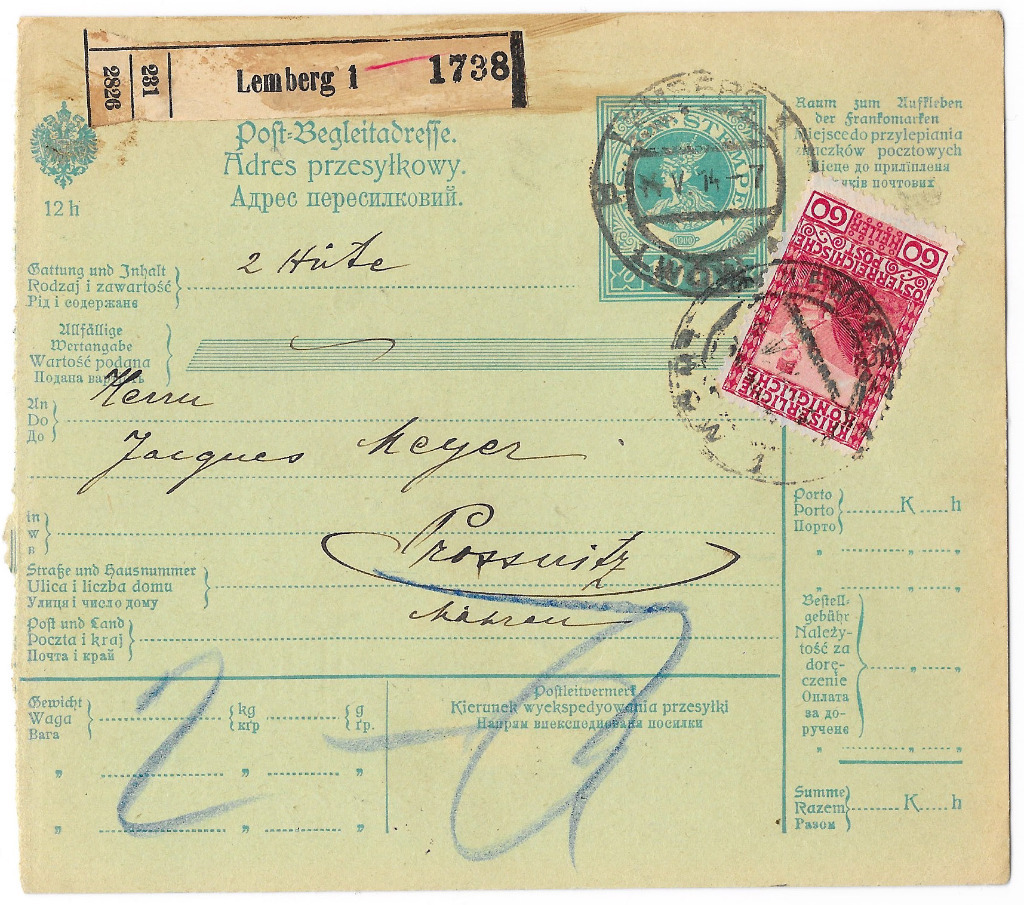 2826
231
Lemberg 1
1738
Post-Begleitadresse.
Adres przesyłkowy.
Адрес пересилковий.
12 h
STEMPEL
1910
14
Raum zum Aufkleben
der Frankomarken
Miejsce do przylepiania
znaczków pocztowych
до приліпленя
почтових
60
60
HELLER
ÖSTERREICHISCHE
POST
KAISERLICHE
KÖNIGLICHE
Gattung und Inhalt
Rodzaj i zawartość
Рід і содержанє
2 Hüte
Allfällige
Wertangabe
Wartość podana
Подана вартість
An
Do
До
Herrn
Jacques Meyer
in
w
в
Prossnitz
Straße und Hausnummer
Ulica i liczba domu
Улиця і число дому
Mähren
Post und Land
Poczta i kraj
Почта і край
Gewicht
Waga
Вага
kg
кґр
g
ґр.
2
Postleitvermerk
Kierunek wyekspedyowania przesyłki
Напрям виекспедиованя посилки
Porto
Porto
Порто
K h
Bestell-
gebühr
Należy-
tość za
dorę-
czenie
Оплата
за до-
ручене
Summe
Razem
Разом
K h